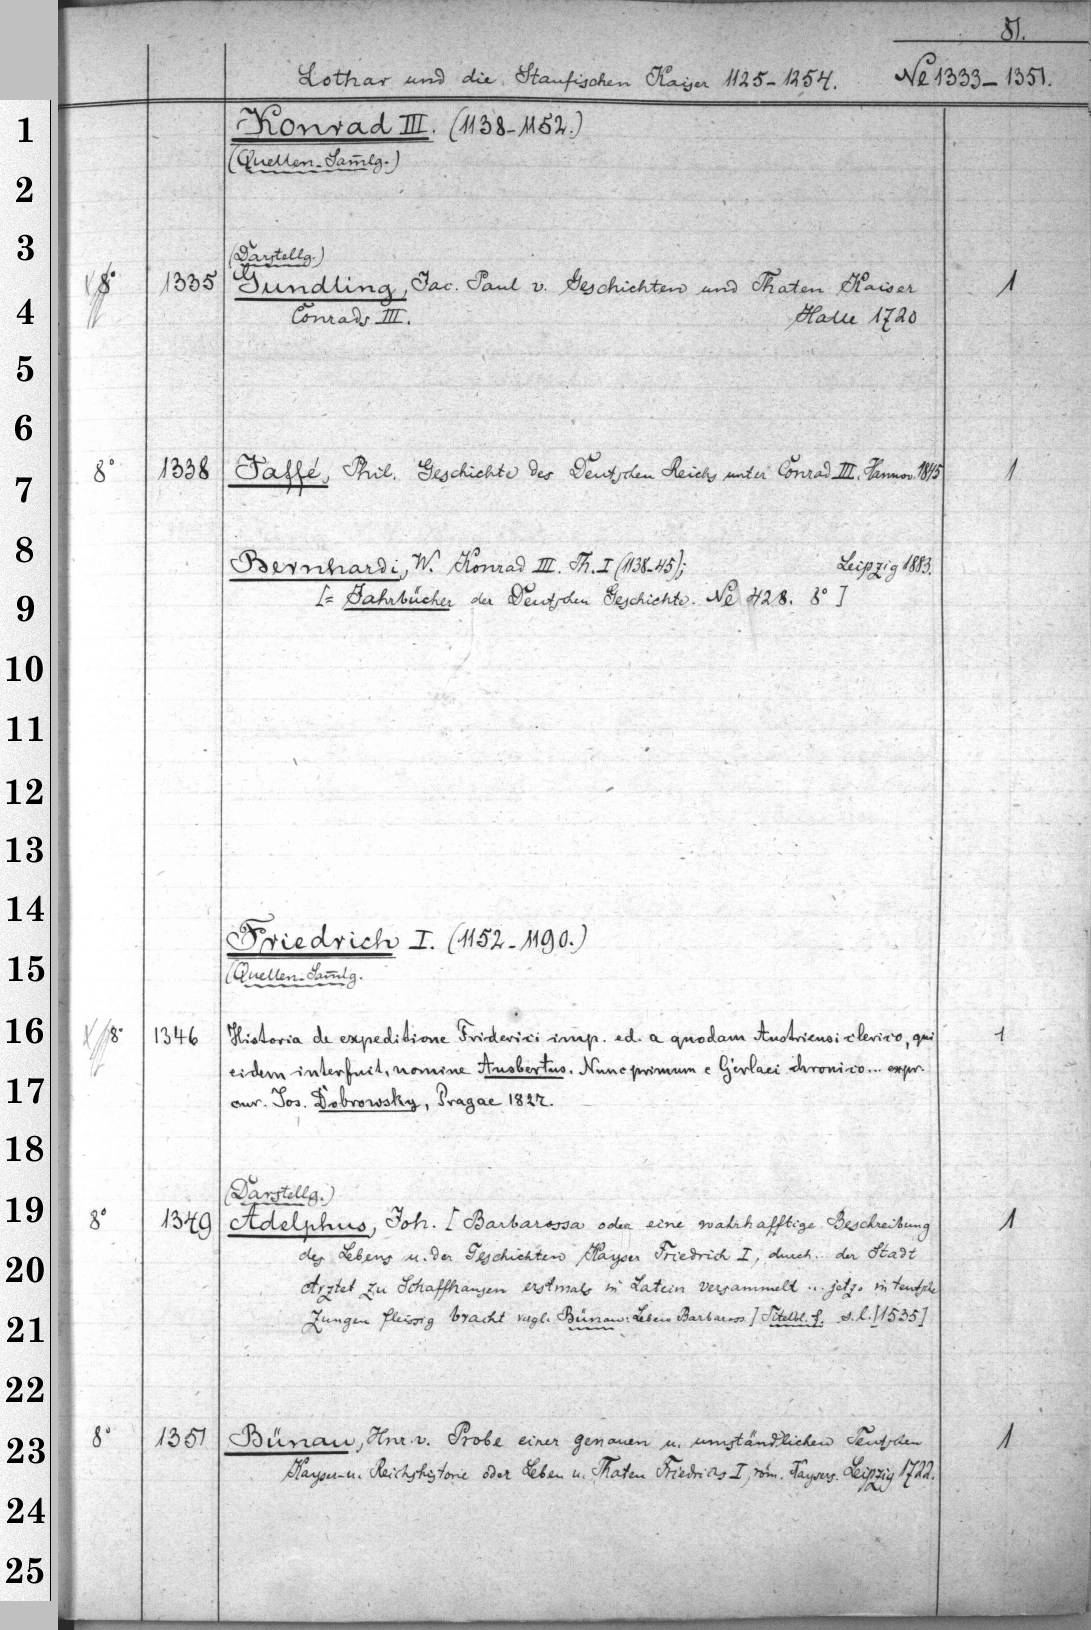 81.
Lothar und die Staufischen Kaiser 1125-1254. № 1333-1351.
1
Konrad III. (1138-1152.)
(Quellen-Sam̄lg.)
2
3
(Darstellg.)
8° 1335 Gundling, Jac. Paul v. Geschichten und Thaten Kaiser 1
4
Conrads III. Halle 1720
5
6
8° 1338 Jaffé, Phil. Geschichte des Deutschen Reichs unter Conrad III. Hannov. 1845 1
7
8
Bernhardi, W. Konrad III. Th. I (1138-45); Leipzig 1883.
9
[= Jahrbücher der Deutschen Geschichte. № 428. 8° ]
10
11
12
13
14
Friedrich I. (1152-1190.)
15
(Quellen-Sam̄lg.
16
8° 1346 Historia de expeditione Friderici imp. ed. a quodam Austriensi clerico, qui 1
eidem interfuit, nomine Ansbertus. Nunc primum e Gerlaci chronico... expr.
17
cur. Jos. Dobrowsky, Pragae 1827.
18
(Darstellg.)
19
8° 1349 Adelphus, Joh. [ Barbarossa oder eine wahrhafftige Beschreibung 1
des Lebens u. der Geschichten Kayser Friedrich I, durch .. der Stadt
20
Arztet zu Schaffhausen erstmals in Latein versammelt ... jetzo in teutsche
21
Zungen fleissig bracht vergl. Bünau: Leben Barbaross. ] Titelbl. f. s. l. [1535]
22
8° 1351 Bünau, Hnr. v. Probe einer genauen u. umständlichen Teutschen 1
23
Kayser- u. Reichshistorie oder Leben u. Thaten Friedrichs I, röm. Kaysers. Leipzig 1722.
24
25